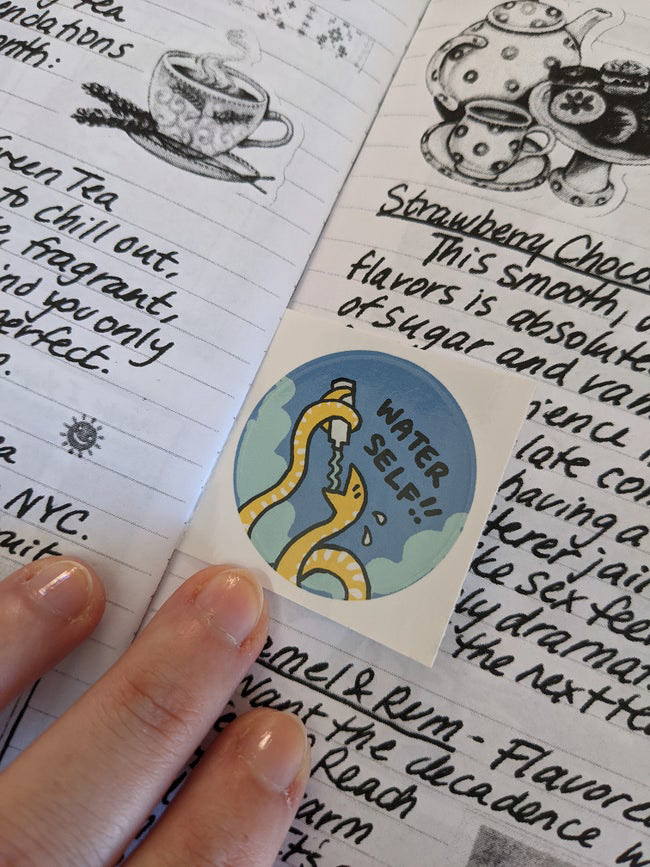 tea
endations
onth:
Green Tea
to chill out.
, fragrant,
ind you only
perfect.
NYC.
Strawberry Choco
This smooth,
flavors is absolute
of sugar and
ience
late com
having a
terer jail
ke sex feel
dramat
the next te
WATER
SELF!!
emel & Rum - Flavored
want the decadence w
Reach
arm
t's